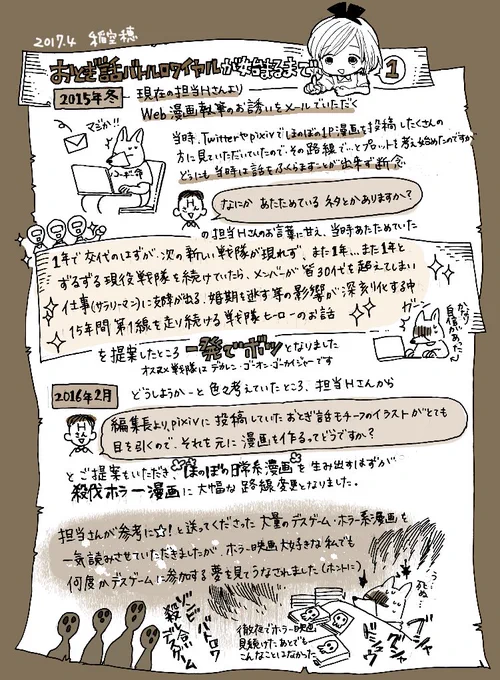 2017.4 稲空穂
おとぎ話バトルロワイヤルが始まるまで 1
2015年冬 現在の担当Hさんより
Web漫画執筆のお誘いをメールでいただく
マジか!!
コーポ一年
当時、Twitterやpixivでほのぼの1P漫画を投稿したくさんの
方に見ていただいていたので、その路線で…とプロットを考え始めたのですが
どうにも当時は話をふくらますことが出来ず断念
なにか あたためている ネタとかありますか?
の担当Hさんのお言葉に甘え、当時あたためていた
1年で交代のはずが、次の新しい戦隊が現れず、また1年…また1年と
ずるずる現役戦隊を続けていたら、メンバーが皆30代を超えてしまい
仕事(サラリーマン)に支障が出る、婚期を逃す等の影響が深刻化する中
15年間第1線を走り続ける戦隊ヒーローのお話
ガーン
かなり自信があった
を提案したところ 一発でボツとなりました
オススメ戦隊は デカレン・ゴーオン・ゴーカイジャーです
2016年2月 どうしようかーと色々考えていたところ、担当Hさんから
編集長より、pixivに投稿していたおとぎ話モチーフのイラストがとても
目を引くので、それを元に漫画を作るってどうですか?
とご提案をいただき、"ほのぼの日常系漫画"を生み出すはずが
殺伐ホラー漫画に大幅な路線変更となりました。
担当さんが参考に☆!と送ってくださった大量のデスゲーム・ホラー系漫画を
一気読みさせていただきましたが、ホラー映画大好きな私でも
何度かデスゲームに参加する夢を見てうなされました(ホントに)
ゾンビ
バトロワ
殺し合い
デスゲーム
徹夜でホラー映画
見続けたあとでも
こんなことはなかった
う…
死ぬ…
グシャ
ドシュッ
ブシャ